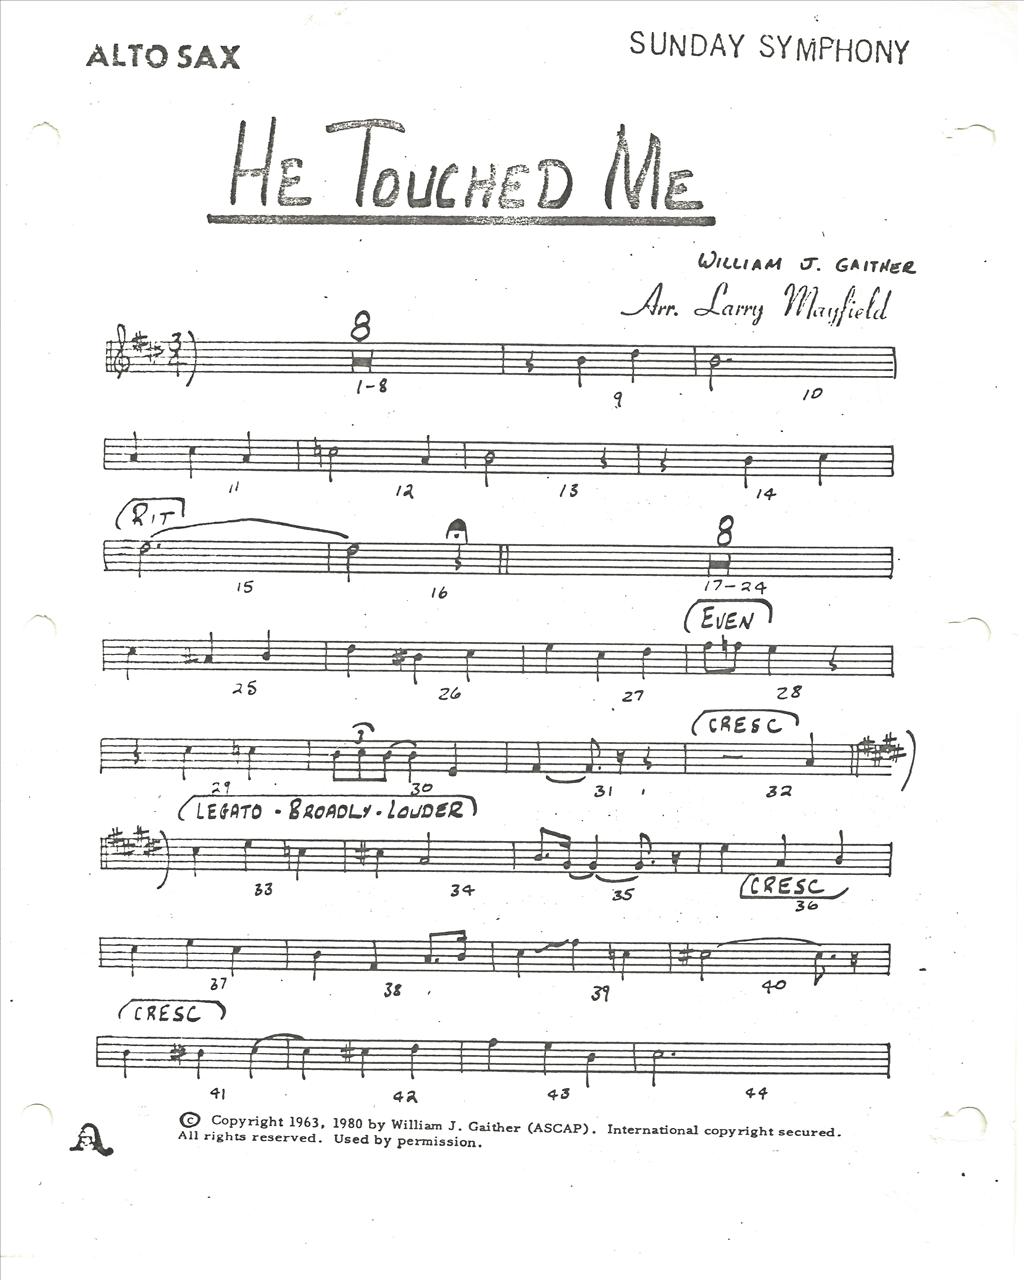 ALTO SAX
SUNDAY SYMPHONY
HE TOUCHED ME
WILLIAM J. GAITHER
Arr. Larry Mayfield
3
4
8
1-8
9
10
11
12
13
14
RIT
15
16
8
17-24
EVEN
25
26
27
28
CRESC
3
29
30
31
32
LEGATO - BROADLY - LOUDER
33
34
35
CRESC
36
37
38
39
40
CRESC
41
42
43
44
© Copyright 1963, 1980 by William J. Gaither (ASCAP). International copyright secured.
All rights reserved. Used by permission.
A